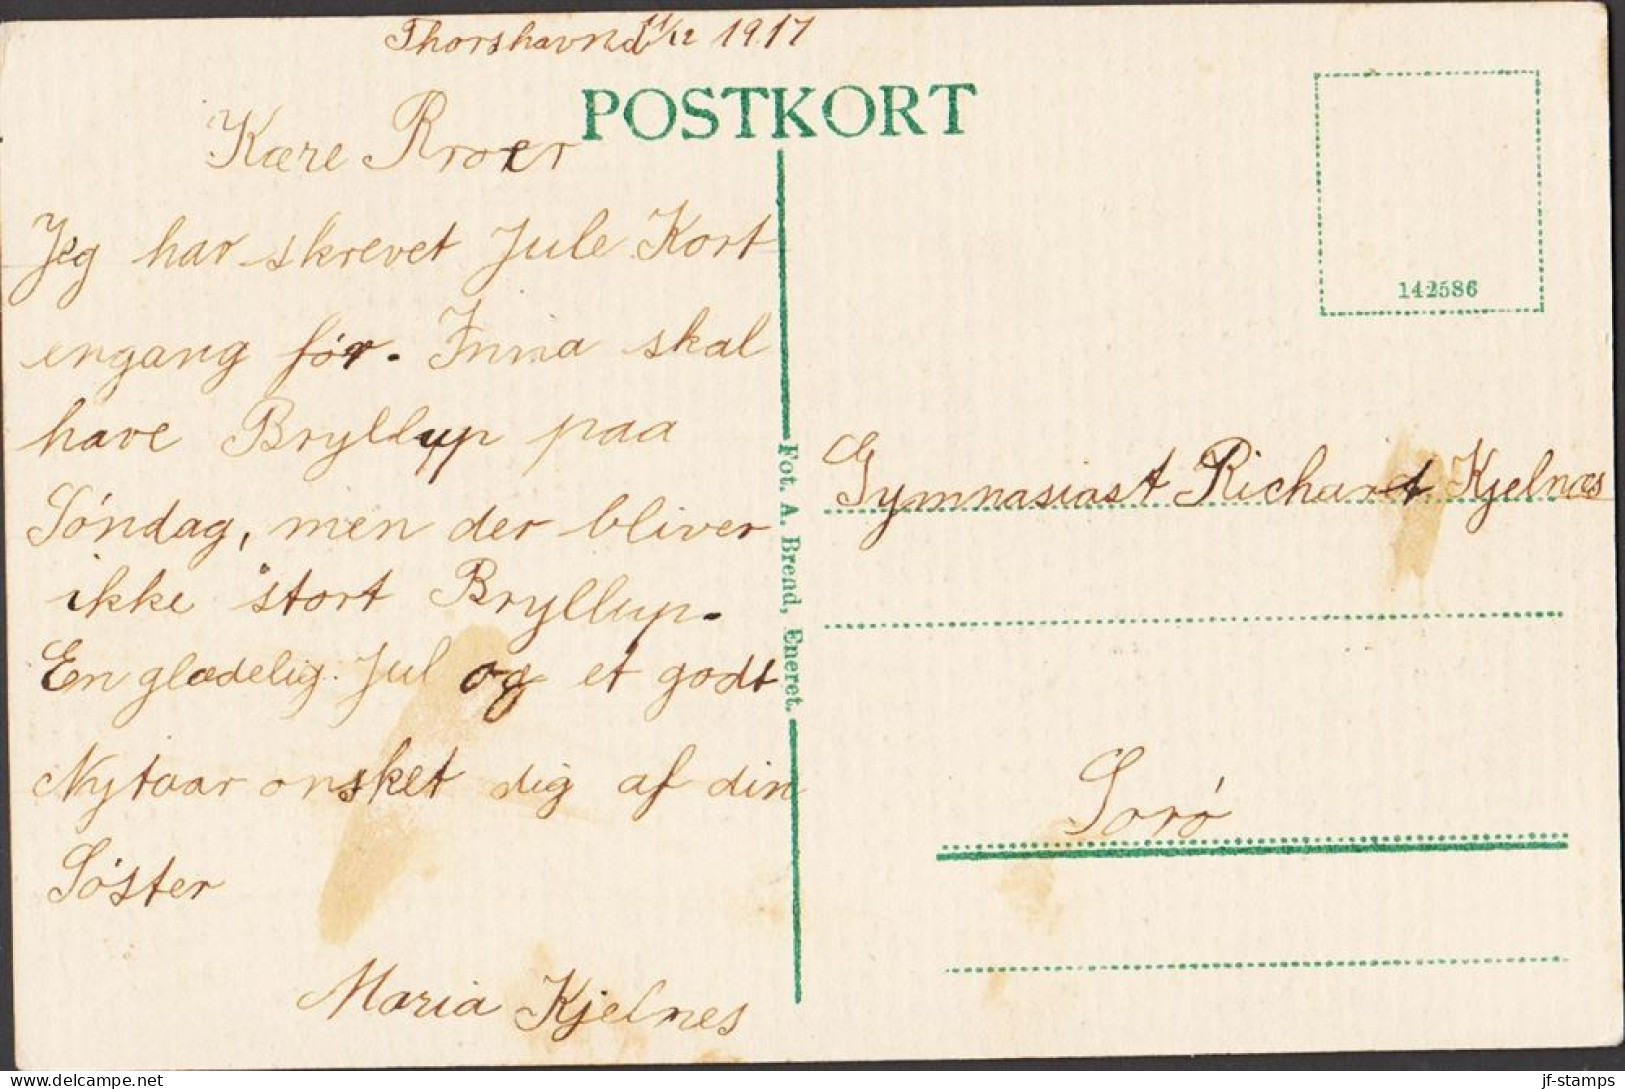 Thorshavn d 11/12 1917
POSTKORT
Kære Broer
Jeg har skrevet Jule Kort
engang før. Inna skal
have Bryllup paa
Søndag, men der bliver
ikke stort Bryllup.
En glædelig Jul og et godt
Nytaar onsket dig af din
Søster
Maria Kjelnes
Fot. A. Brend, Eneret.
142586
Gymnasiast Richart Kjelnæs
Sorø
jf-stamps